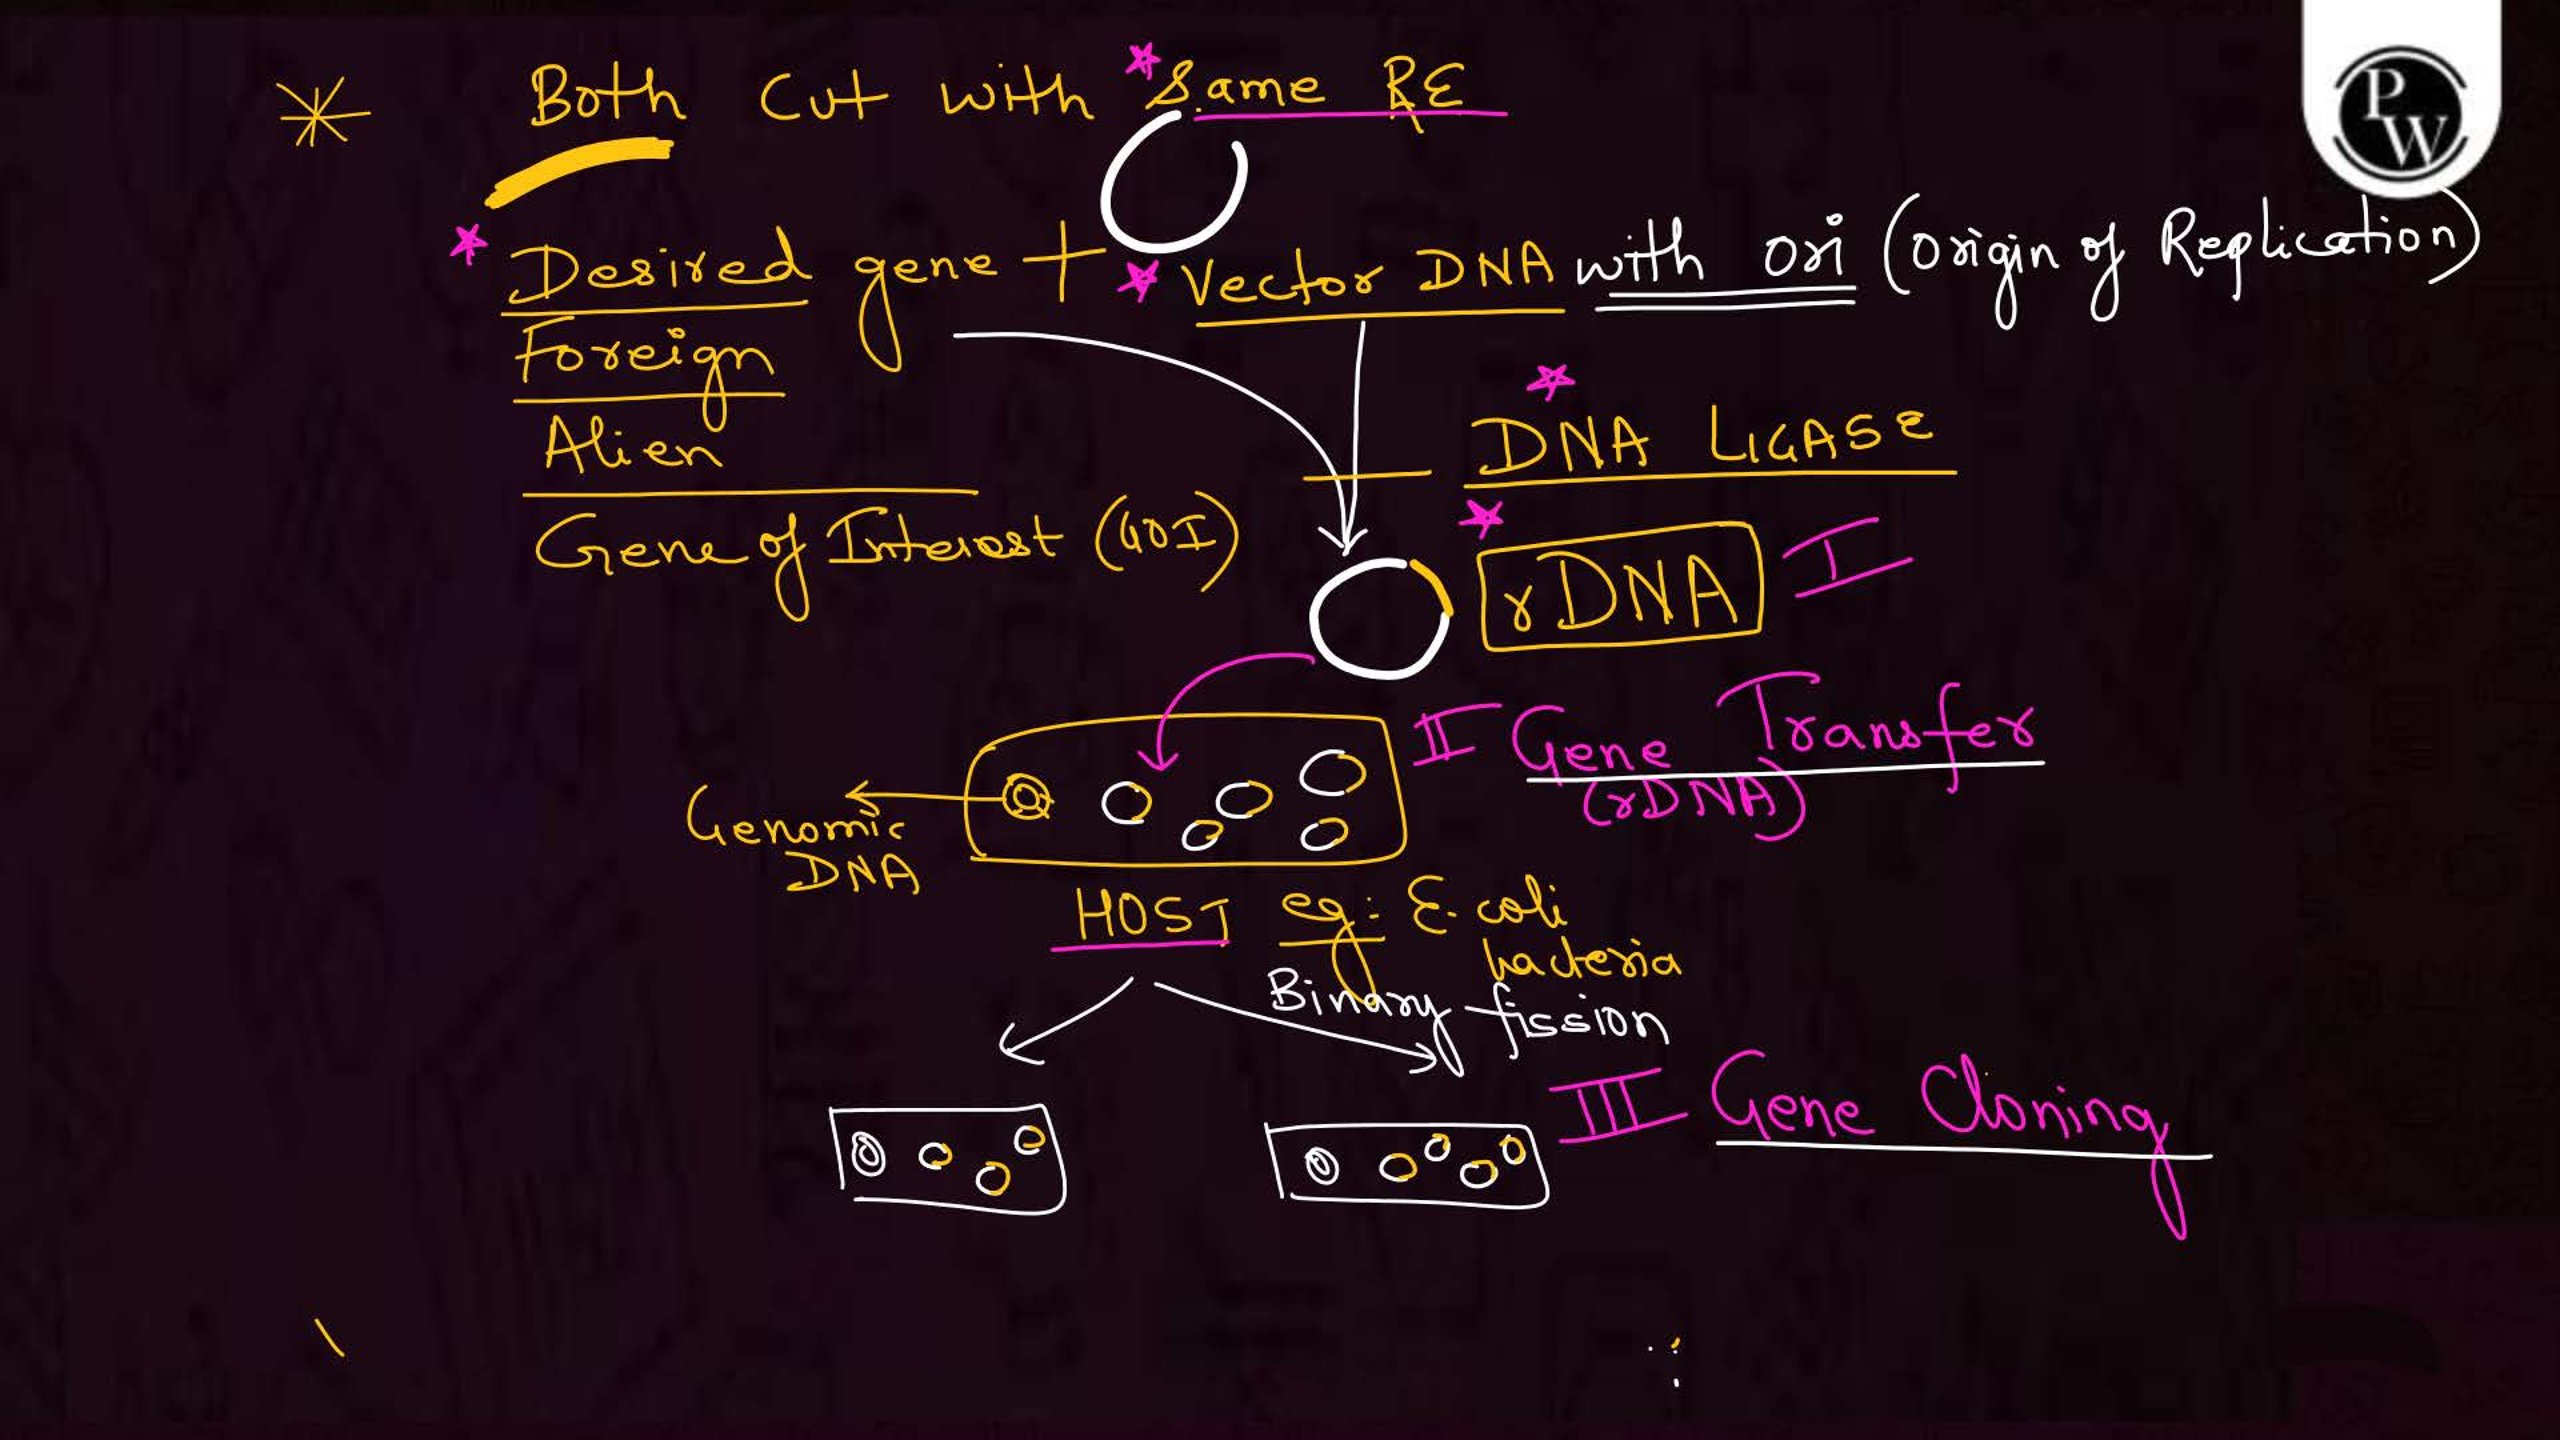 Both Cut with Same RE
Desired gene + Vector DNA with Ori (Origin of Replication)
Foreign
Alien
Gene of Interest (GOI)
DNA LIGASE
rDNA I
II Gene Transfer
(rDNA)
Genomic
DNA
HOST eg:- E. coli
bacteria
Binary fission
III Gene Cloning
PW